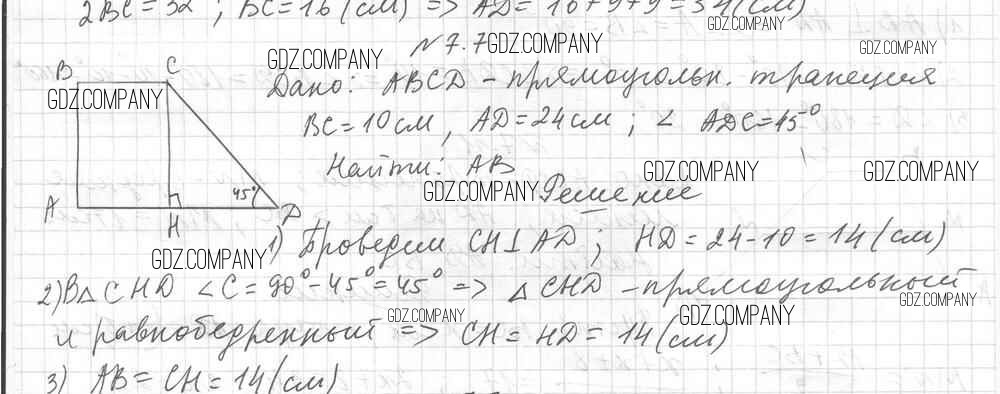 2BC = 32 ; BC = 16 (см) => AD = 16+9+9 = 34 (см)
GDZ.COMPANY
№ 7.7 GDZ.COMPANY
GDZ.COMPANY
GDZ.COMPANY
B C
Дано: ABCD - прямоугольн. трапеция
GDZ.COMPANY
BC = 10 см, AD = 24 см ; ∠ ADC = 45°
Найти: AB
GDZ.COMPANY
GDZ.COMPANY
GDZ.COMPANY
Решение
45°
A H D
1) Проведем CH⊥AD ; HD = 24 - 10 = 14 (см)
GDZ.COMPANY
2) В △ CHD ∠C = 90° - 45° = 45° => △ CHD - прямоугольный
GDZ.COMPANY
GDZ.COMPANY
GDZ.COMPANY
и равнобедренный => CH = HD = 14 (см)
3) AB = CH = 14 (см)